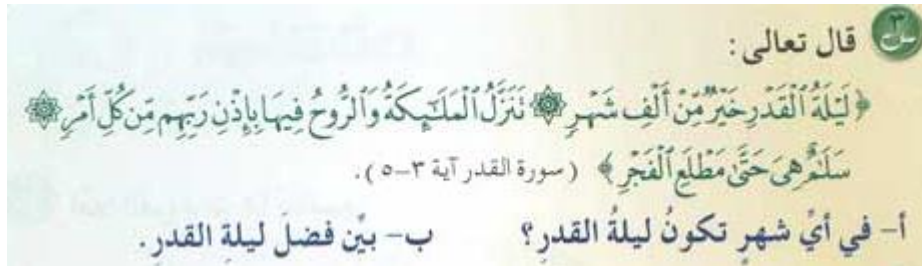 س٣ قال تعالى:
﴿لَيْلَةُ ٱلْقَدْرِ خَيْرٌ مِّنْ أَلْفِ شَهْرٍ ۝ تَنَزَّلُ ٱلْمَلَـٰٓئِكَةُ وَٱلرُّوحُ فِيهَا بِإِذْنِ رَبِّهِم مِّن كُلِّ أَمْرٍ ۝
سَلَـٰمٌ هِىَ حَتَّىٰ مَطْلَعِ ٱلْفَجْرِ﴾ (سورة القدر آية ٣-٥).
أ- في أيِّ شهرٍ تكونُ ليلةُ القدرِ؟ ب- بيِّن فضلَ ليلةِ القدرِ.